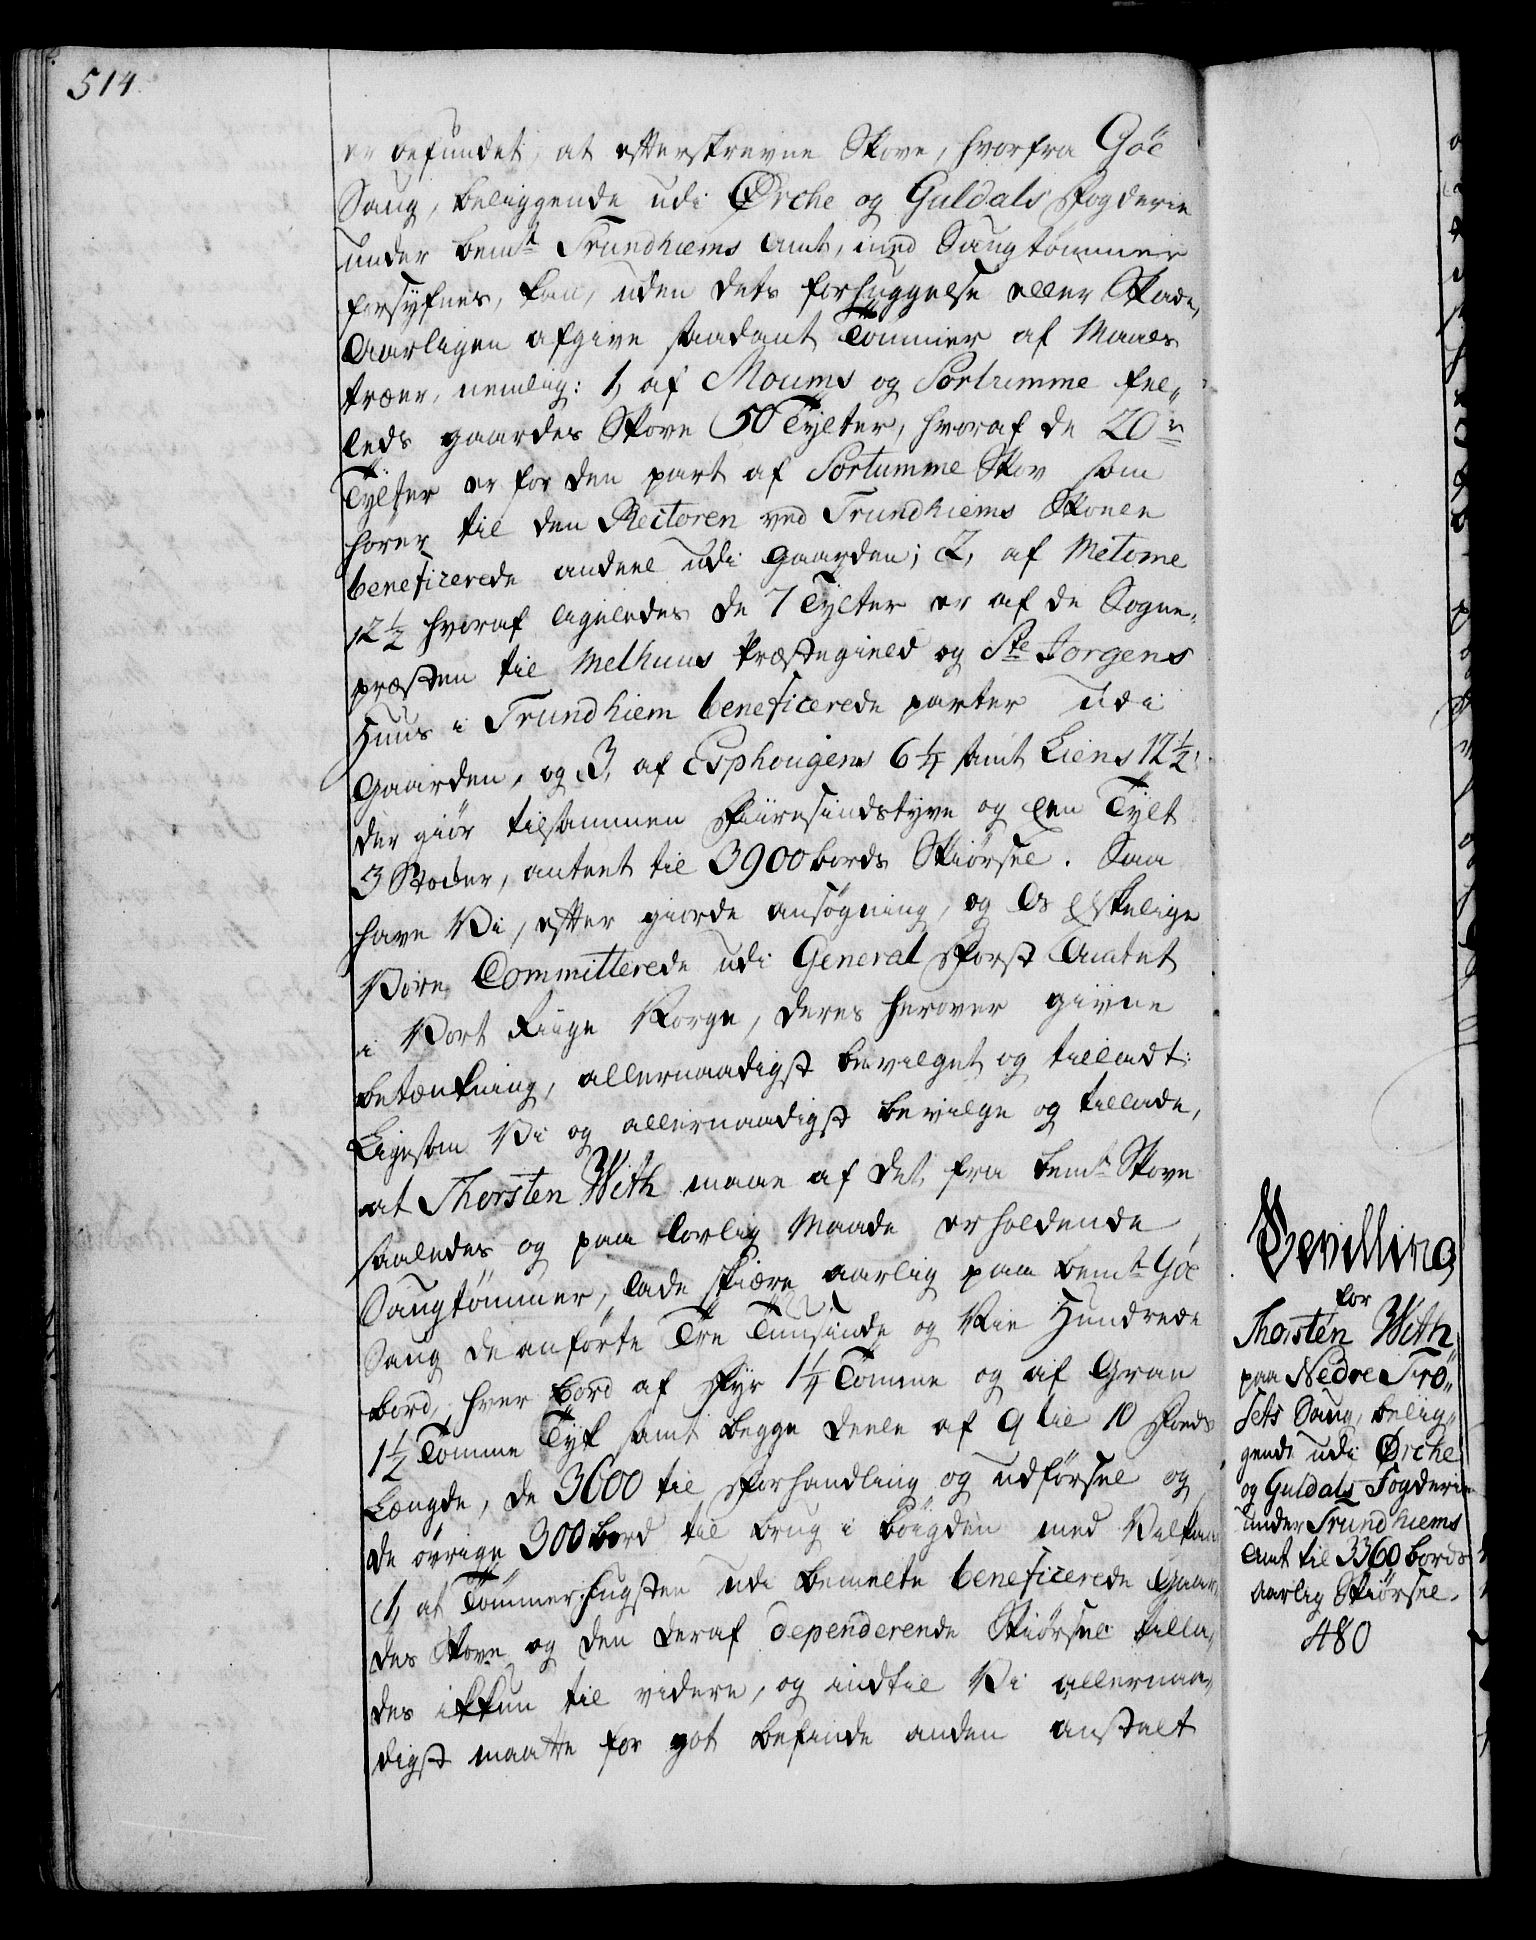 514
er befundet, at efterskrevne Skove, hvorfra Göe
Saug, beliggende udi Ørche og Guldals Fogderie
under bemt Trundhiems Amt, med Saugtømmer
forsyfnes, kan, uden dets forhuggelse eller Skade,
Aarligen afgive saadant Tømmer af Maads
træer, nemlig: 1, af Moums og Sortumme fel„
leds gaardes Skove 50 Tylter, hvoraf de 20 n
Tylter er for den part af Sortumme Skov som
hører til den Rectoren ved Trundhiems Skoele
beneficerede andeel udi gaarden; 2, af Metome
12½ hvoraf ligeledes de 7 Tylter er af de Sogne„
præsten til Melhuus Præstegield og Ste Jorgens
Huus i Trundhiem beneficerede parter udi
Gaarden, og 3, af Esphougens 6¼ samt Liens 12½,
der giør tilsammen Fiiresindstyve og een Tylt
3 Stoker, anteet til 3900 bords Skiørsel. Saa
have Vi, efter giorde ansøgning, og Os Elskelige
Vore Committerede udi General Forst Amtet
i Vort Riige Norge, deres herover givne
betænkning, allernaadigst bevilget og tilladt:
Ligesom Vi og allernaadigst bevilge og tillade,
at Thorsten With maae af det, fra bemte Skove
saaledes og paa lovlig Maade erholdende
Saugtømmer, lade skiære aarlig paa bemte Göe
Saug de anførte Tre Tuusinde og Nie Hundrede
bord, hver Bord af Fyr 1¼ Tomme og af Gran
1½ Tomme Tyk samt begge deele af 9 til 10 Foeds
Længde, de 3600 til Forhandling og udførsel og
de øvrige 300 bord til brug i Bøigden med Vilkaar
1, at Tømmer hugsten udi bemelte beneficerede Gaar„
des Skove og den deraf dependerende Skiørsel tilla„
des ikkun til videre, og indtil Vi allernaa„
digst maatte for got befinde anden anstalt
Bevilling
for
Thorsten With
paa Nedre Trö„
sets Saug, belig„
gende udi Ørche
og Guldals Fogderie
under Trundhiems
Amt til 3360 bords
aarlig Skiørsel.
480